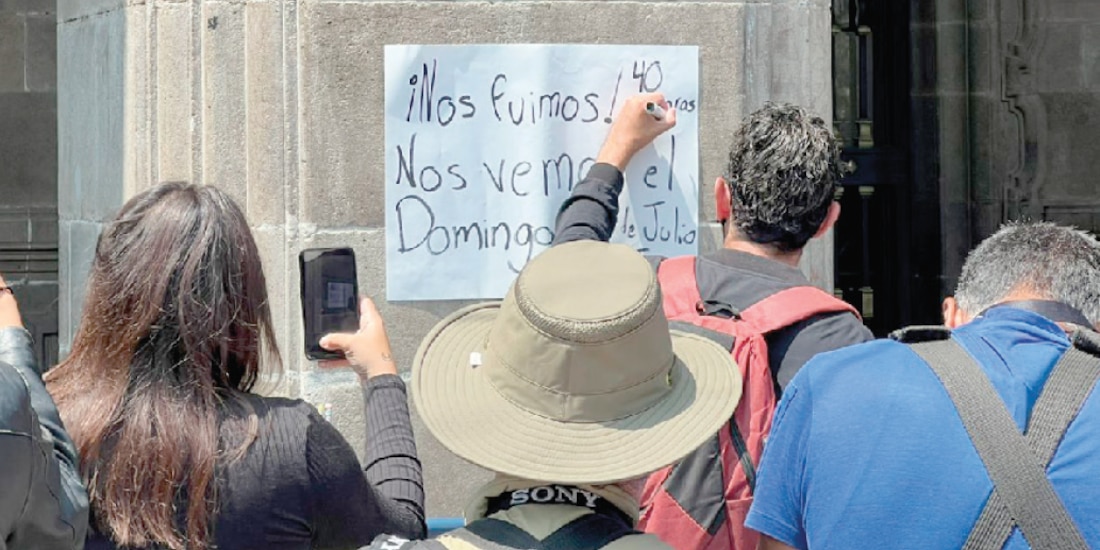 ¡Nos fuimos! 40
Nos vemo el
Domingo de Julio
SONY